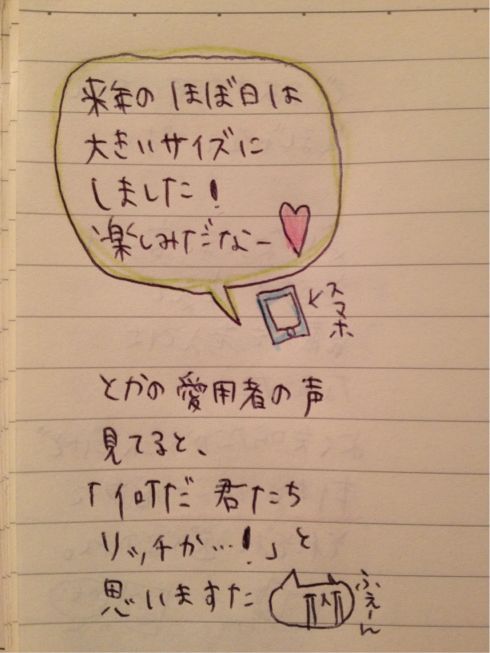 来年の ほぼ日は
大きいサイズに
しました!
楽しみだなー
スマホ
とかの 愛用者の 声
見てると、
「何だ 君たち
リッチか…!」と
思いますた
ふぇーん